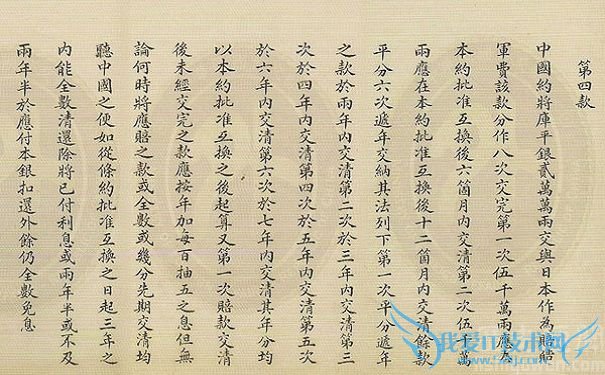 第四款
中國約將庫平銀貳萬萬兩交與日本作為賠償
軍費該款分作八次交完第一次伍千萬兩應在
本約批准互換後六箇月內交清第二次伍千萬
兩應在本約批准互換後十二箇月內交清餘款
平分六次遞年交納其法列下第一次平分遞年
之款於兩年內交清第二次於三年內交清第三
次於四年內交清第四次於五年內交清第五次
於六年內交清第六次於七年內交清其年分均
以本約批准互換之後起算又第一次賠款交清
後未經交完之款應按年加每百抽五之息但無
論何時將應賠之款或全數或幾分先期交清均
聽中國之便如從條約批准互換之日起三年之
內能全數清還除將已付利息或兩年半或不及
兩年半於應付本銀扣還外餘仍全數免息
我爱IT技术网